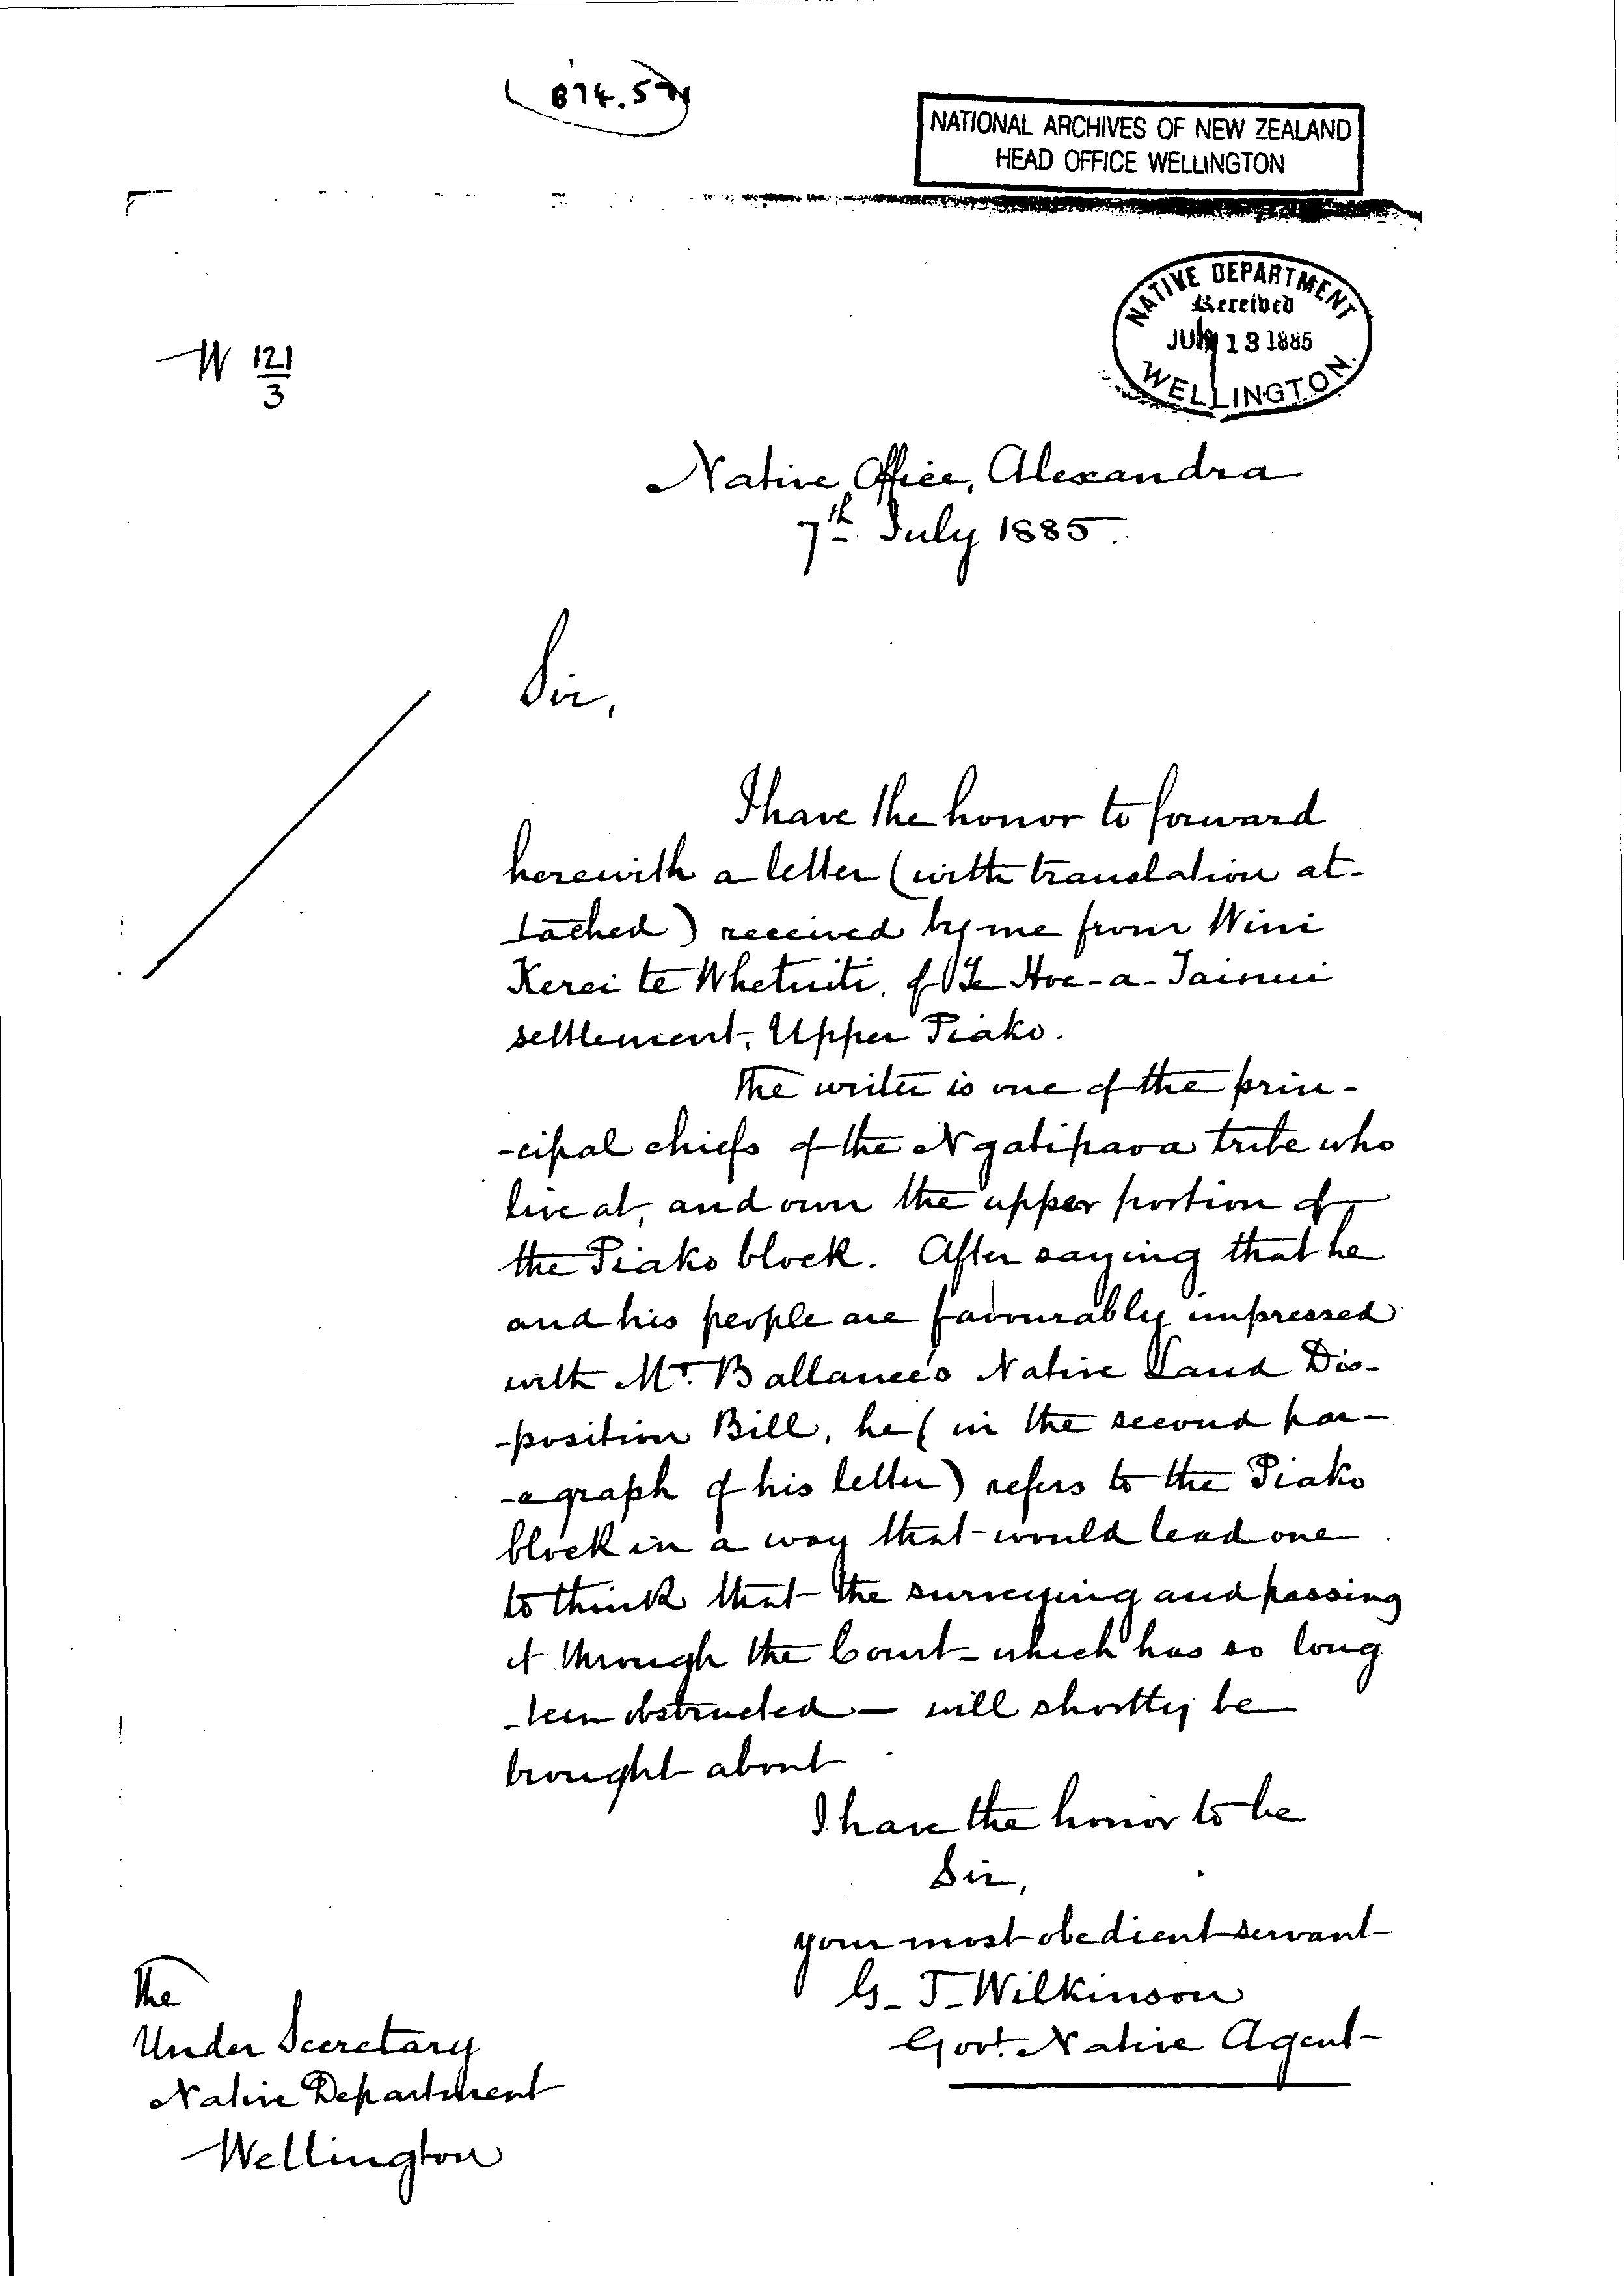 874.
NATIONAL ARCHIVES OF NEW ZEALAND
HEAD OFFICE WELLINGTON
NATIVE DEPARTMENT
Received
JULY 13 1885
WELLINGTON.
W 121/3
Native Office, Alexandra
7th July 1885.
Sir,
I have the honor to forward
herewith a letter (with translation at-
tached) received by me from Wini
Kerei te Whetuiti, of Te Hoe-a-Tainui
settlement, Upper Piako.
The writer is one of the prin-
-cipal chiefs of the Ngatipaoa tribe who
live at, and own the upper portion of
the Piako block. After saying that he
and his people are favourably impressed
with Mr. Ballance's Native Land Dis-
-position Bill, he (in the second par-
-agraph of his letter) refers to the Piako
block in a way that would lead one
to think that the surveying and passing
it through the Court - which has so long
been obstructed - will shortly be
brought about
I have the honor to be
Sir,
your most obedient servant
G. T. Wilkinson
Govt. Native Agent
The
Under Secretary
Native Department
Wellington